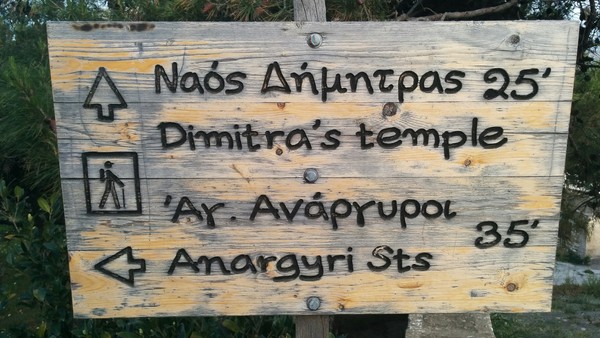 Ναός Δήμητρας 25'
Dimitra's temple
'Αγ. Ανάργυροι
35'
Anargyri Sts